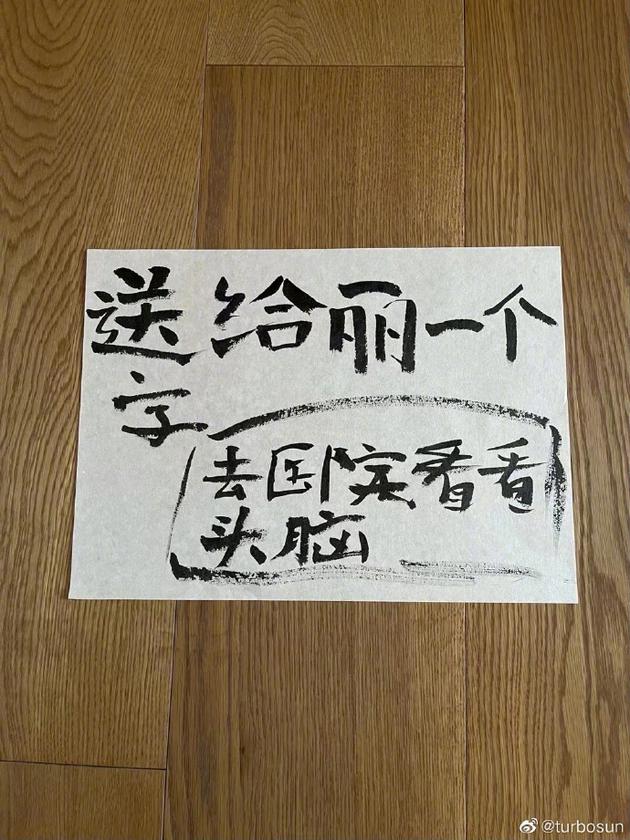 送给丽一个
字
去医院看看
头脑
@turbosun